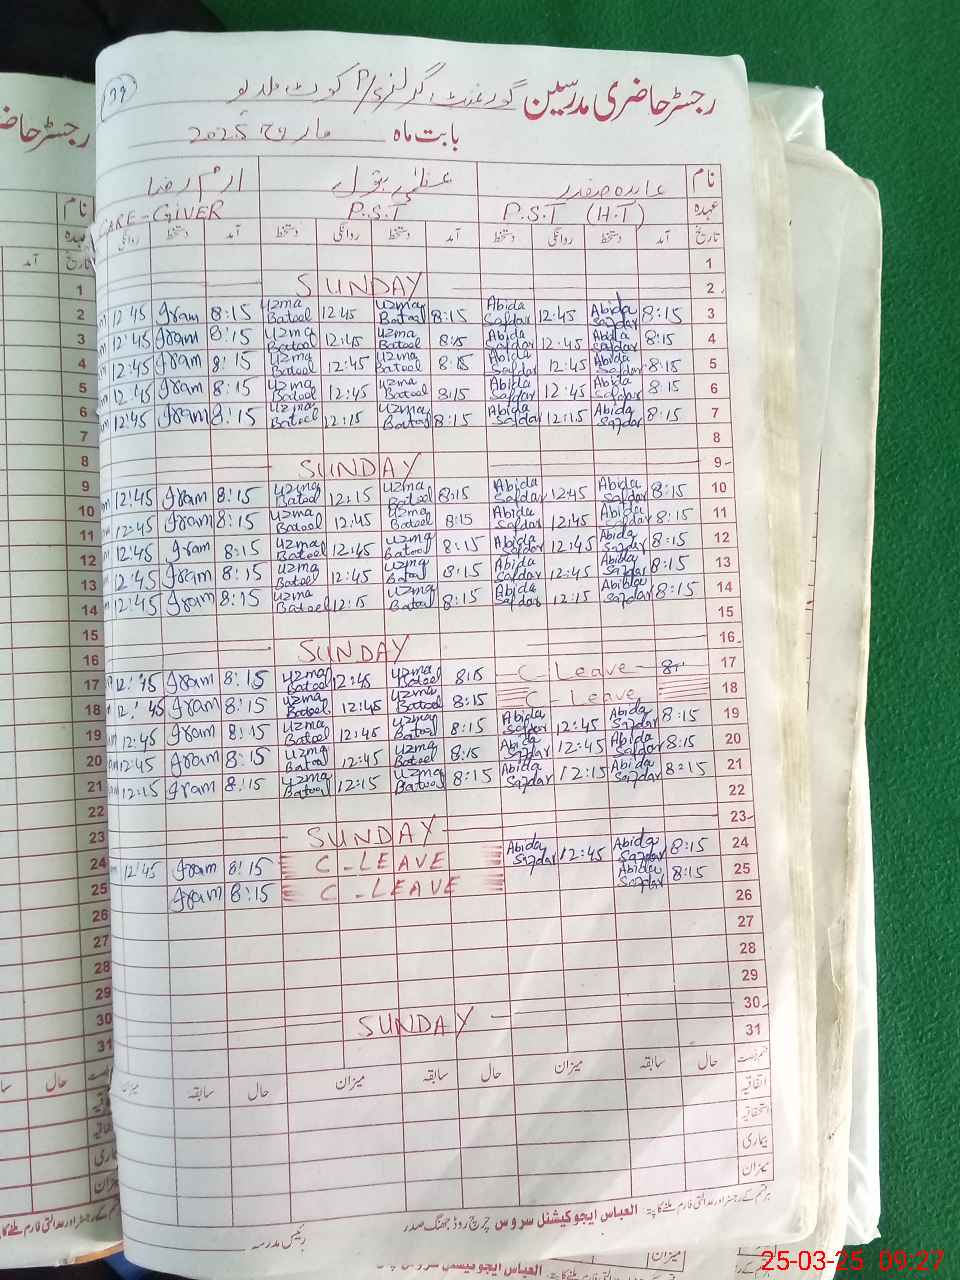 39
رجسٹر حاضری مدرسین گورنمنٹ گرلز P/S کوٹ
بابت ماہ مارچ 2025
نام عابدہ صفدر عظمٰی بتول ارم رضا
عہدہ P.S.T (H.T) P.S.T CARE-GIVER
تاریخ آمد دستخط روانگی دستخط آمد دستخط روانگی دستخط آمد دستخط روانگی
1
SUNDAY 2
12:45 Iram 8:15 Uzma Batool 12:45 Uzma Batool 8:15 Abida Safdar 12:45 Abida Safdar 8:15 3
12:45 Iram 8:15 Uzma Batool 12:45 Uzma Batool 8:15 Abida Safdar 12:45 Abida Safdar 8:15 4
12:45 Iram 8:15 Uzma Batool 12:45 Uzma Batool 8:15 Abida Safdar 12:45 Abida Safdar 8:15 5
12:45 Iram 8:15 Uzma Batool 12:45 Uzma Batool 8:15 Abida Safdar 12:45 Abida Safdar 8:15 6
12:45 Iram 8:15 Uzma Batool 12:15 Uzma Batool 8:15 Abida Safdar 12:15 Abida Safdar 8:15 7
8
SUNDAY 9
12:45 Iram 8:15 Uzma Batool 12:15 Uzma Batool 8:15 Abida Safdar 12:45 Abida Safdar 8:15 10
12:45 Iram 8:15 Uzma Batool 12:45 Uzma Batool 8:15 Abida Safdar 12:45 Abida Safdar 8:15 11
12:45 Iram 8:15 Uzma Batool 12:45 Uzma Batool 8:15 Abida Safdar 12:45 Abida Safdar 8:15 12
12:45 Iram 8:15 Uzma Batool 12:45 Uzma Batool 8:15 Abida Safdar 12:45 Abida Safdar 8:15 13
12:45 Iram 8:15 Uzma Batool 12:15 Uzma Batool 8:15 Abida Safdar 12:15 Abida Safdar 8:15 14
15
SUNDAY 16
12:45 Iram 8:15 Uzma Batool 12:45 Uzma Batool 8:15 C Leave 17
12:45 Iram 8:15 Uzma Batool 12:45 Uzma Batool 8:15 C - Leave 18
12:45 Iram 8:15 Uzma Batool 12:45 Uzma Batool 8:15 Abida Safdar 12:45 Abida Safdar 8:15 19
12:45 Iram 8:15 Uzma Batool 12:45 Uzma Batool 8:15 Abida Safdar 12:45 Abida Safdar 8:15 20
12:15 Iram 8:15 Uzma Batool 12:15 Uzma Batool 8:15 Abida Safdar 12:15 Abida Safdar 8:15 21
22
SUNDAY 23
12:45 Iram 8:15 C - LEAVE Abida Safdar 12:45 Abida Safdar 8:15 24
Iram 8:15 C - LEAVE Abida Safdar 8:15 25
26
27
28
29
SUNDAY 30
31
حال سابقہ میزان حال سابقہ میزان حال سابقہ میزان
اتفاقیہ
استحقاقیہ
بیماری
میزان
ہر قسم کے رجسٹر اور عدالتی فارم ملنے کا پتہ: العباس ایجوکیشنل سروس چرچ روڈ جھنگ صدر
رئیس مدرسہ
رجسٹر حاضری
نام
عہدہ
تاریخ آمد
1
2
3
4
5
6
7
8
9
10
11
12
13
14
15
16
17
18
19
20
21
22
23
24
25
26
27
28
29
30
31
حال
میزان
العباس ایجوکیشنل سروس
25-03-25 09:27